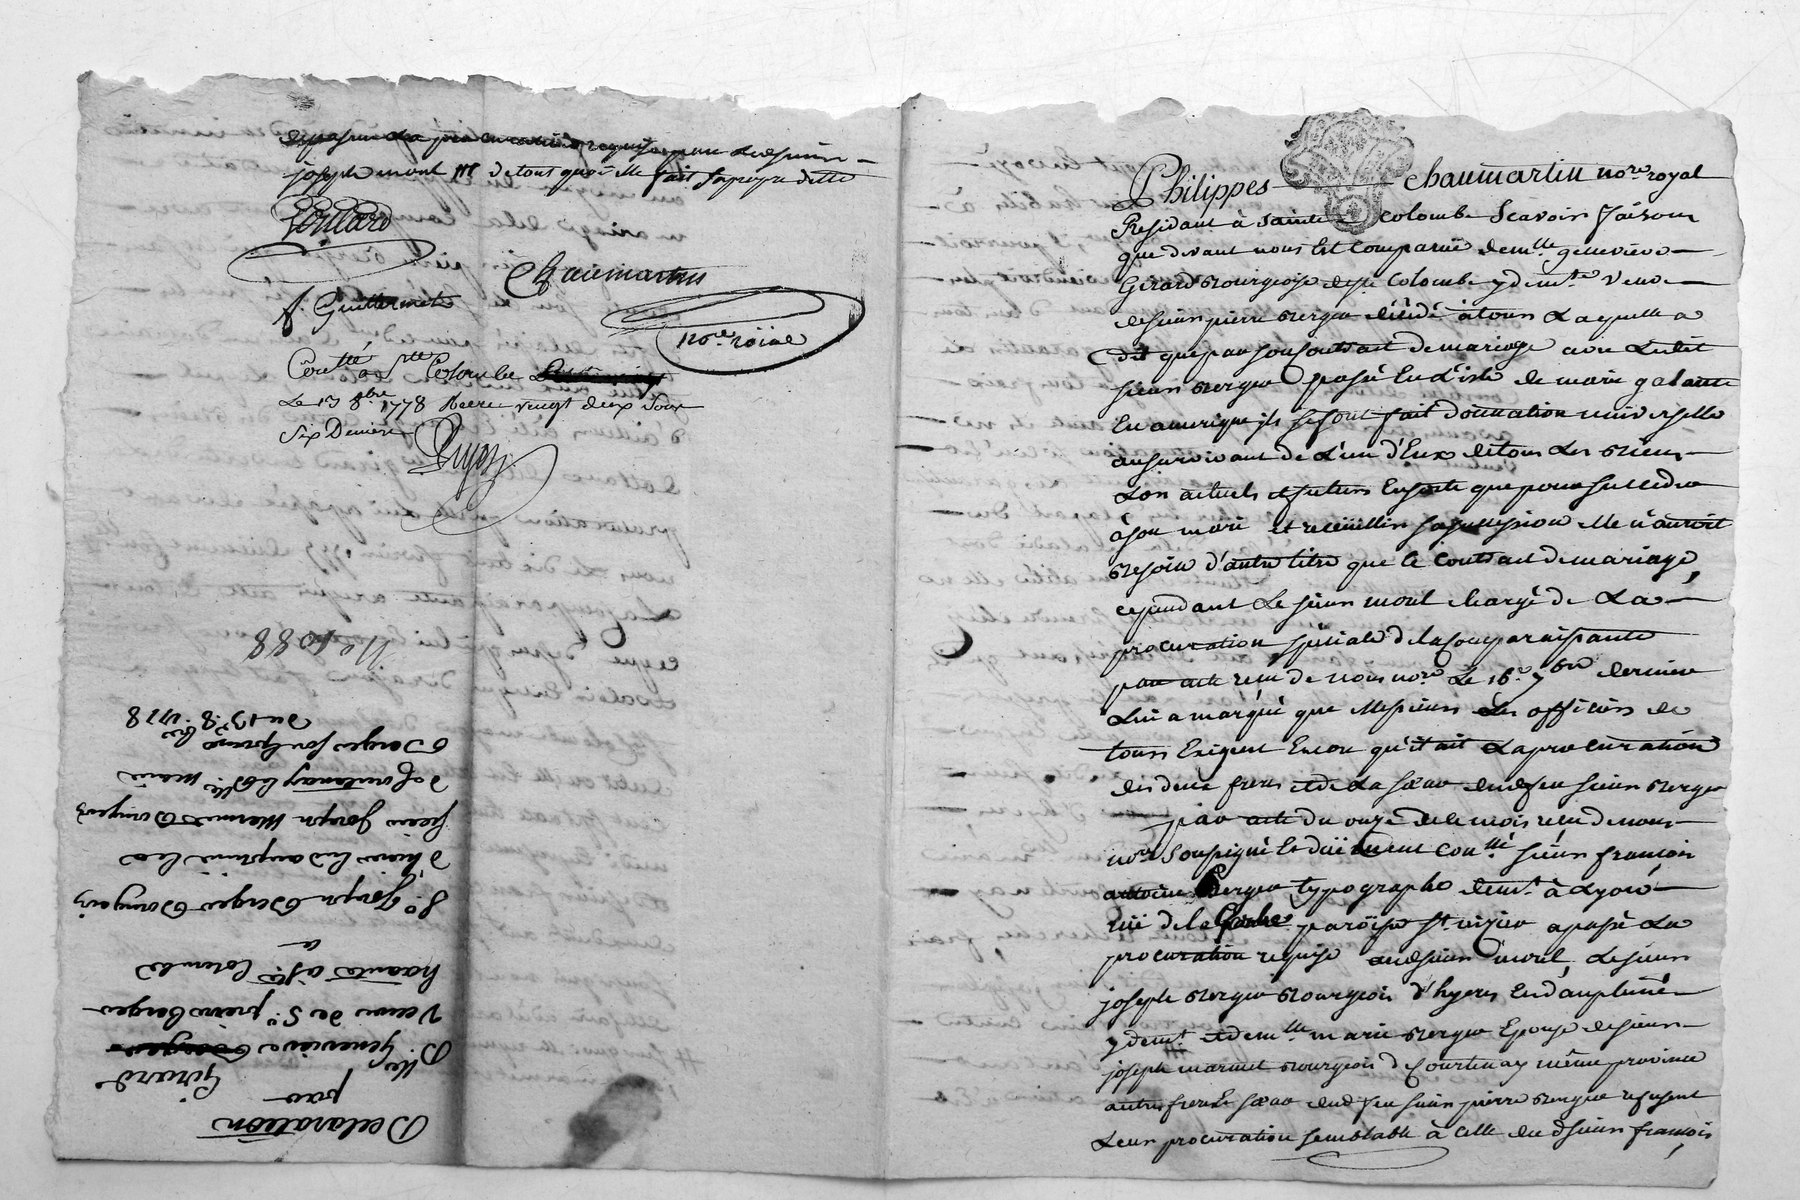 joseph mout et de tout quoi elle fait sa propre dette
Chaumartin
f. Guillermet
nore roial
Conttlé a Ste Colombe
Le 13 8bre 1778 Recu vingt deux sous
six Deniers
Guyon
No 1088
Declaration
par
Dlle Genevieve
Girard
Veuve de Sr pierre Berger
habante a Ste Colombe
a
Sr Joseph Berger Bourgeois
d'hieres en dauphiné & a
sieur Joseph Marmet Bourgeois
de Courtenay & Dlle Marie
Berger son Epouse
du 13e 8bre 1778
Philippes Chaumartin nore royal
Residant à sainte colombe scavoir faisons
que devant nous est comparüe demlle genevieve
Girard Bourgeoise de ste Colombe y demte veuve
de sieur pierre Berger décédé à tours Laquelle a
dit que par son contract de mariage avec Ledit
sieur Berger passé En L'isle de marie galante
En amerique ils se sont fait donnation universelle
au survivant de L'un d'Eux de tous Les Biens
Lors actuels et futurs Ensorte que pour succeder
à son mari et recueillir sa succession elle n'auroit
Besoin d'autre titre que le contract de mariage,
cependant Le sieur mout chargé de La
procuration speciale de la comparaissante
par acte reçu de nous nore Le 16e 7bre dernier
Lui a marqué que Messieurs Les officiers de
tours Exigent Encore qu'il ait La procuration
des deux freres et de La sœur dudit feu sieur Berger
par acte du onze de ce mois reçu de nous
nore soussigné Et düement conttlé sieur françois
antoine Berger typographe demt à Lyon
rüe de la paroisse St nizier a passé La
procuration requise audit sieur mout, Le sieur
joseph Berger Bourgeois d'hyeres En dauphiné
y demt et demlle marie Berger Epouse de sieur
joseph marmet Bourgeois de Courtenay même province
autres frere Et sœur dudit feu sieur pierre Berger refusent
Leur procuration semblable à celle du dit sieur françois